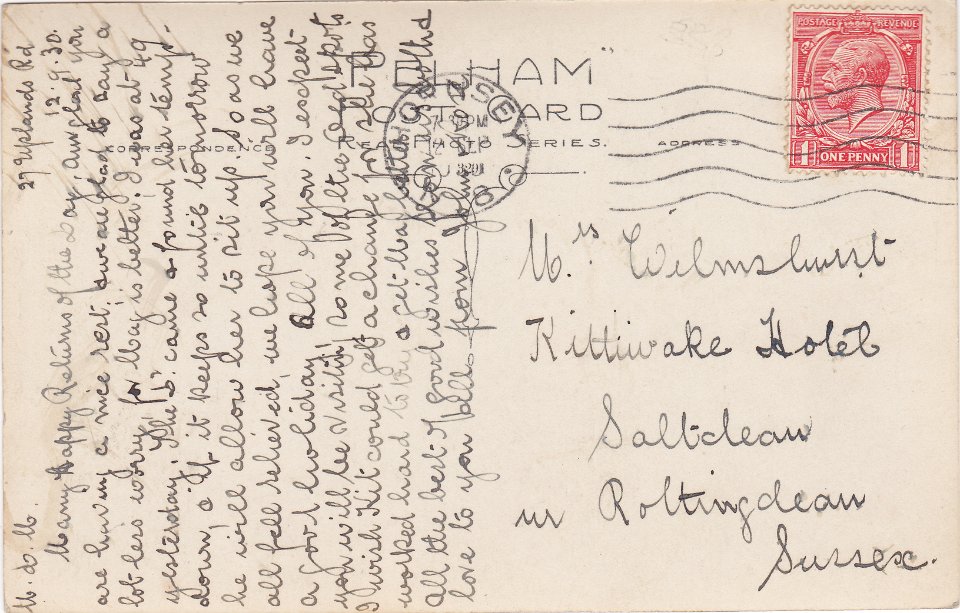 29 Uplands Rd
12.9.30.
M. D. M.
Many Happy Returns of the Day, am glad you
are having a nice rest, we are glad to say a
lot less worry, for May is better. I was at 49
yesterday. The Dr. came & found her temp.
down, & if it keeps so until tomorrow
he will allow her to sit up. So as we
all feel relieved, we hope you will have
a good holiday all of you. I expect
you will be visiting some of the old spots
I wish Kit could get a change for she has
worked hard to try & get May better. With
all the best of good wishes &
love to you all. from John
"PELHAM"
POST CARD
REAL PHOTO SERIES.
CORRESPONDENCE
ADDRESS
HORNSEY
N. 8
7.30 PM
12 SEP
POSTAGE REVENUE
1 ONE PENNY 1
Mrs Wilmshurst
Kittiwake Hotel
Saltdean
nr Rottingdean
Sussex.